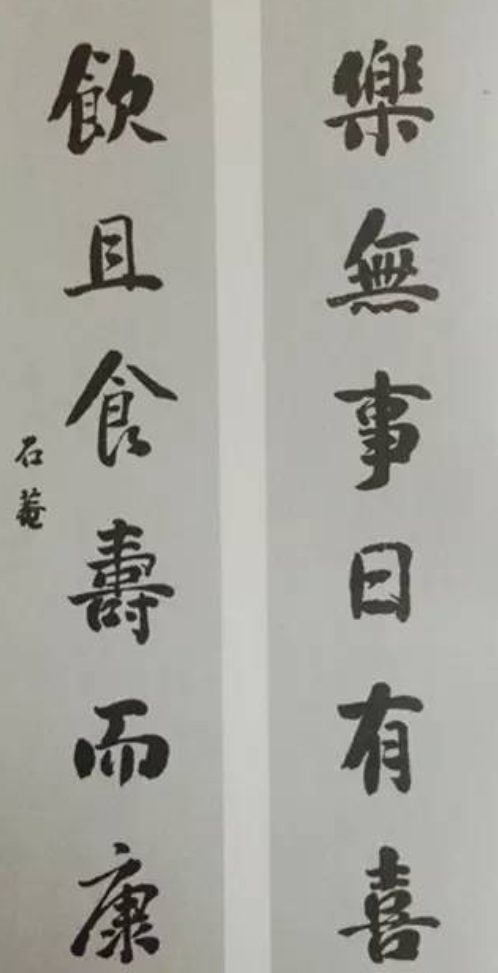 樂無事日有喜
飲且食壽而康
石菴